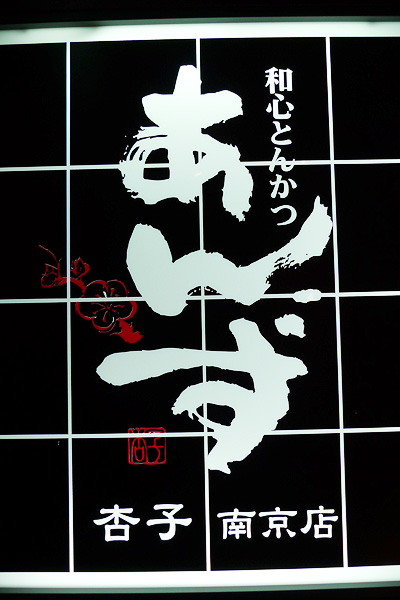 和心とんかつ
あんず
杏子
杏子 南京店